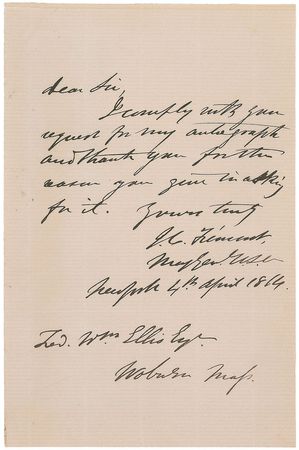 Dear Sir,
I comply with your
request for my autograph
and thank you for the
reason you give in asking
for it. Yours truly
J. C. Frémont,
Maj Gen. U.S.A.
New York 4th April 1864.
Fed. Wm. Ellis Esqr.
Woburn Mass.